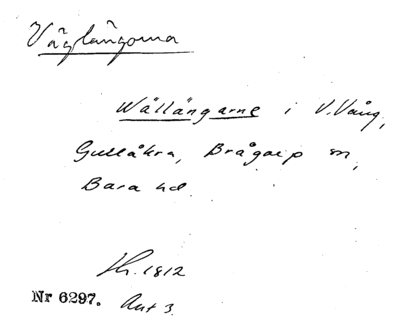 Väglångorna
Wällängarne i V. Vång,
Gullåkra, Brågarp sn,
Bara hd.
Th. 1812
Nr 6297. Akt 3.